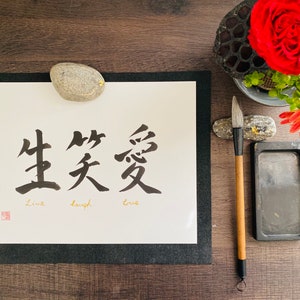 生笑愛
Live laugh love